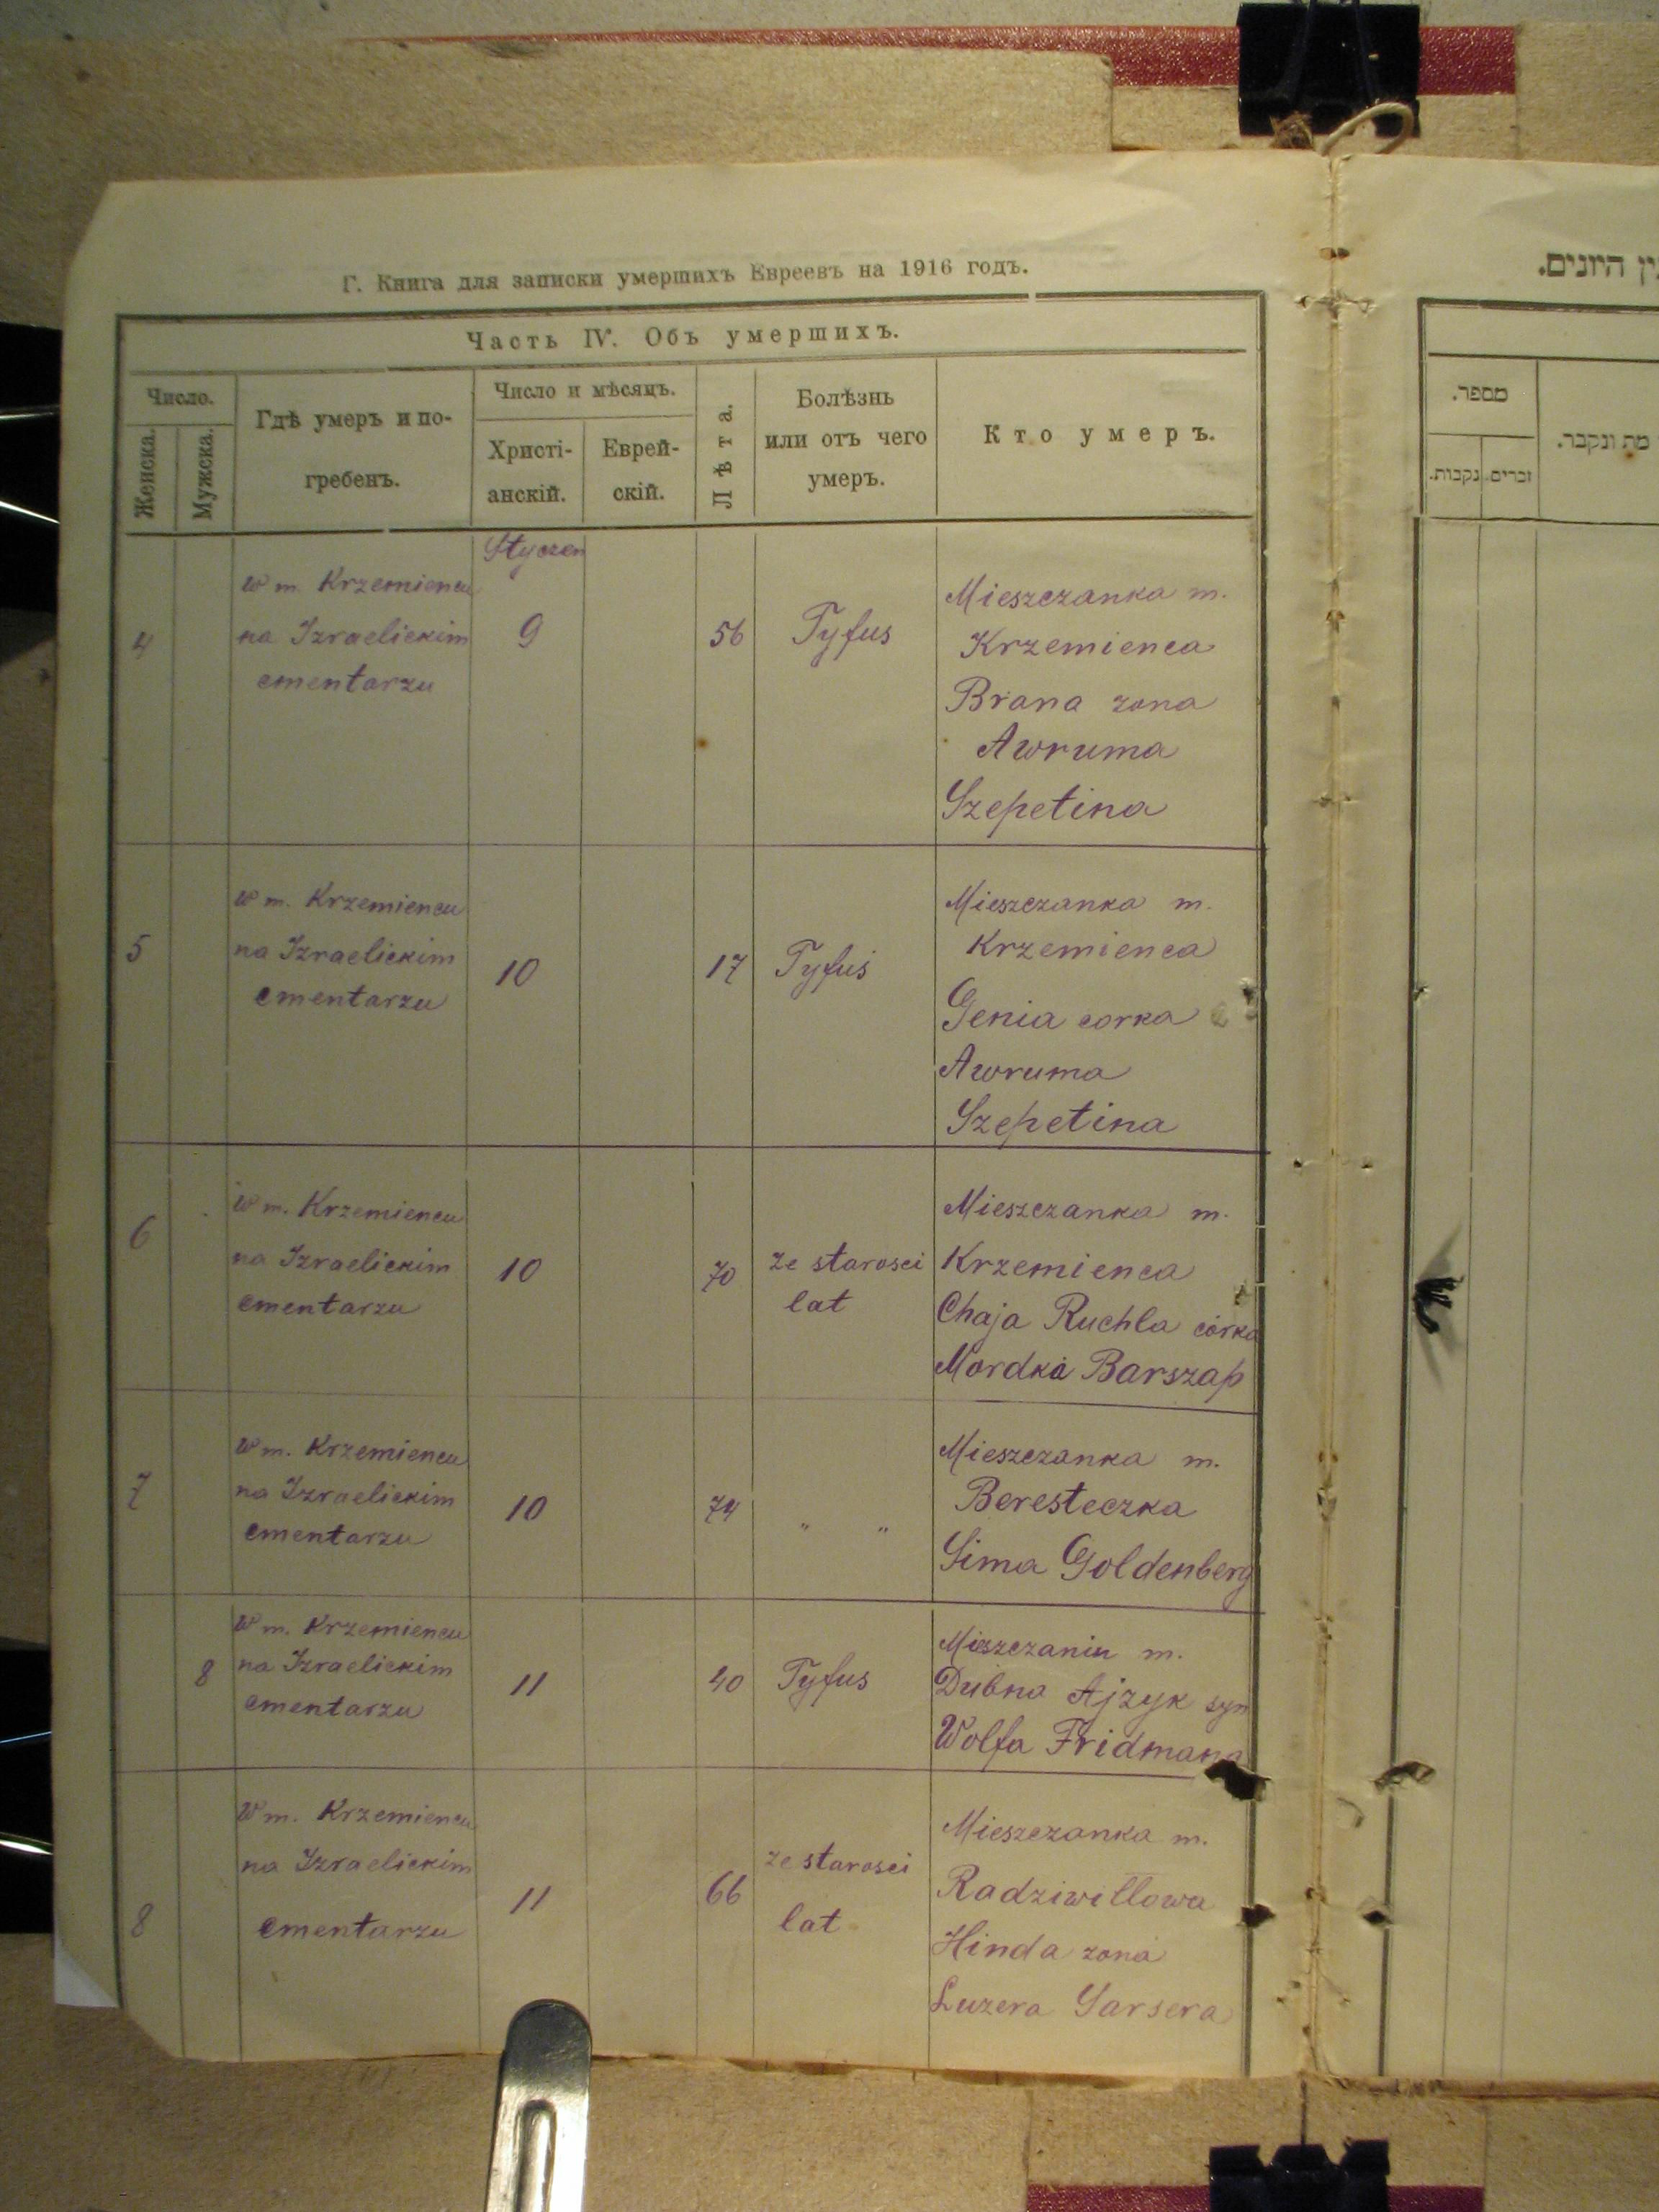 Г. Книга для записки умершихъ Евреевъ на 1916 годъ.
Часть IV. Объ умершихъ.
Число.
Женска.
Мужска.
Гдѣ умеръ и по-
гребенъ.
Число и мѣсяцъ.
Христі-
анскій.
Еврей-
скій.
Лѣта.
Болѣзнь
или отъ чего
умеръ.
Кто умеръ.
Styczeń
4
w m. Krzemiencu
na Izraelickim
cmentarzu
9
56
Tyfus
Mieszczanka m.
Krzemienca
Brana zona
Awruma
Szepetina
5
w m. Krzemiencu
na Izraelickim
cmentarzu
10
17
Tyfus
Mieszczanka m.
Krzemienca
Genia corka
Awruma
Szepetina
6
w m. Krzemiencu
na Izraelickim
cmentarzu
10
70
ze starosci
lat
Mieszczanka m.
Krzemienca
Chaja Ruchla córka
Mordka Barszap
7
w m. Krzemiencu
na Izraelickim
cmentarzu
10
74
" "
Mieszczanka m.
Beresteczka
Sima Goldenberg
8
w m. Krzemiencu
na Izraelickim
cmentarzu
11
40
Tyfus
Mieszczanin m.
Dubna Ajzyk syn
Wolfa Fridmana
8
w m. Krzemiencu
na Izraelickim
cmentarzu
11
66
ze starosci
lat
Mieszczanka m.
Radziwillowa
Hinda zona
Luzera Sarsera
ין היונים.
מספר.
זכרים.
נקבות.
מת ונקבר.